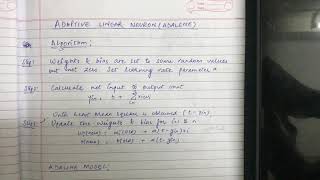 ADAPTIVE LINEAR NEURON (ADALINE)
Algorithm:
Step1 Weights & bias are set to some random values
but not zero. Set learning rate parameter α
Step2 Calculate net input to output unit
yin =
Until Least Mean Square is obtained (t - yin),
Step3 Update the weights & bias for i=1 to n
wi(new) = wi(old) + α(t-yin)xi
+ α(t-yin)
ADALINE MODEL: